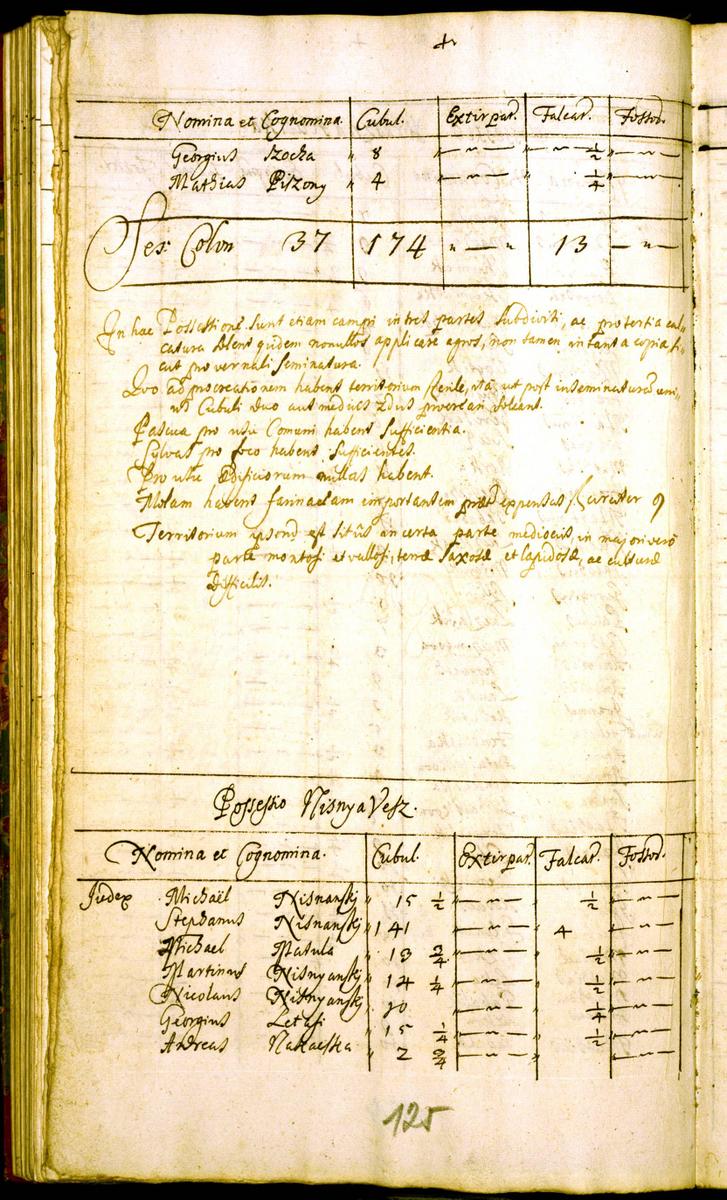 Nomina et Cognomina. Cubul. Extirpat. Falcat. Fossor.
Georgius Szocka " 8 " — " — " — " — 1/2 " — " —
Mathias Piszony " 4 " — " — " 1/4 " — " —
Sex Colon 37 174 " — " 13 — " —
In hac Possessione sunt etiam campi in tres partes subdiviti, ac pro tertia cal-
catura solent quidem nonullos applicare agros, non tamen in tanta copia, si-
cut pro vernali seminatura.
Quo ad procreationem habent territorium sterile, ita, ut post inseminaturam uni-
us Cubuli duo aut medius 2dus provenari soleant.
Pascua pro usu Comuni habent sufficientia.
Sylvas pro foco habent sufficientes.
Pro usu Ædificiorum nullas habent.
Molam habent farinaciam importantem præter expensas 9
Territorium ipsond est situs in certa parte mediocris, in majori vero
parte montosi et vallosi, terræ saxosæ et lapidosæ, ac culturæ
difficilis.
Possessio Nisnya Vesz.
Nomina et Cognomina. Cubul. Extirpat. Falcat. Fossor.
Judex Michaël Nisnanskj " 15 1/2 " — " — " 1/2 " — " —
Stephanus Nisnanskj " 141 " — " — " 4 " — " —
Michael Matula " 13 3/4 " — " — " 1/2 " — " —
Martinus Nisnyanskj " 14 1/4 " — " — " 1/2 " — " —
Nicolaus Nisnyanskj " 20 " — " — " 1/4 " — " —
Georgius Letasi " 15 1/4 " — " — " 1/2 " — " —
Andreas " 2 3/4 " — " — " " — " —
125